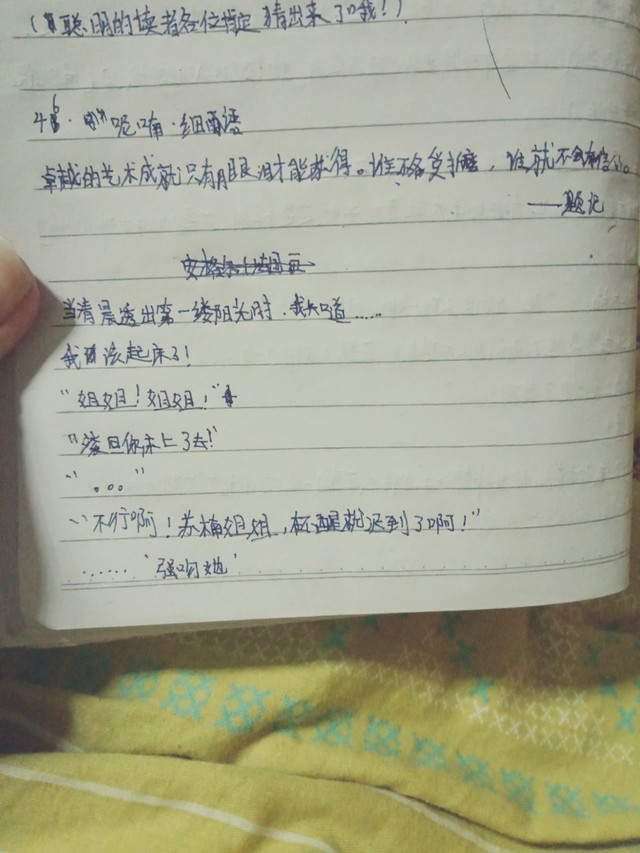 (聪明的读者各位肯定猜出来了哦!)
46. 呢喃·细雨语
卓越的艺术成就只有用眼泪才能获得。谁不备受折磨，谁就不会有信心。
——题记
当清晨透出第一缕阳光时，我知道……
我该起床了!
“姐姐!姐姐!”
“滚回你床上了去!”
“。。。”
“不行啊!苏楠姐姐，不醒就迟到了啊!”
……‘强吻她’